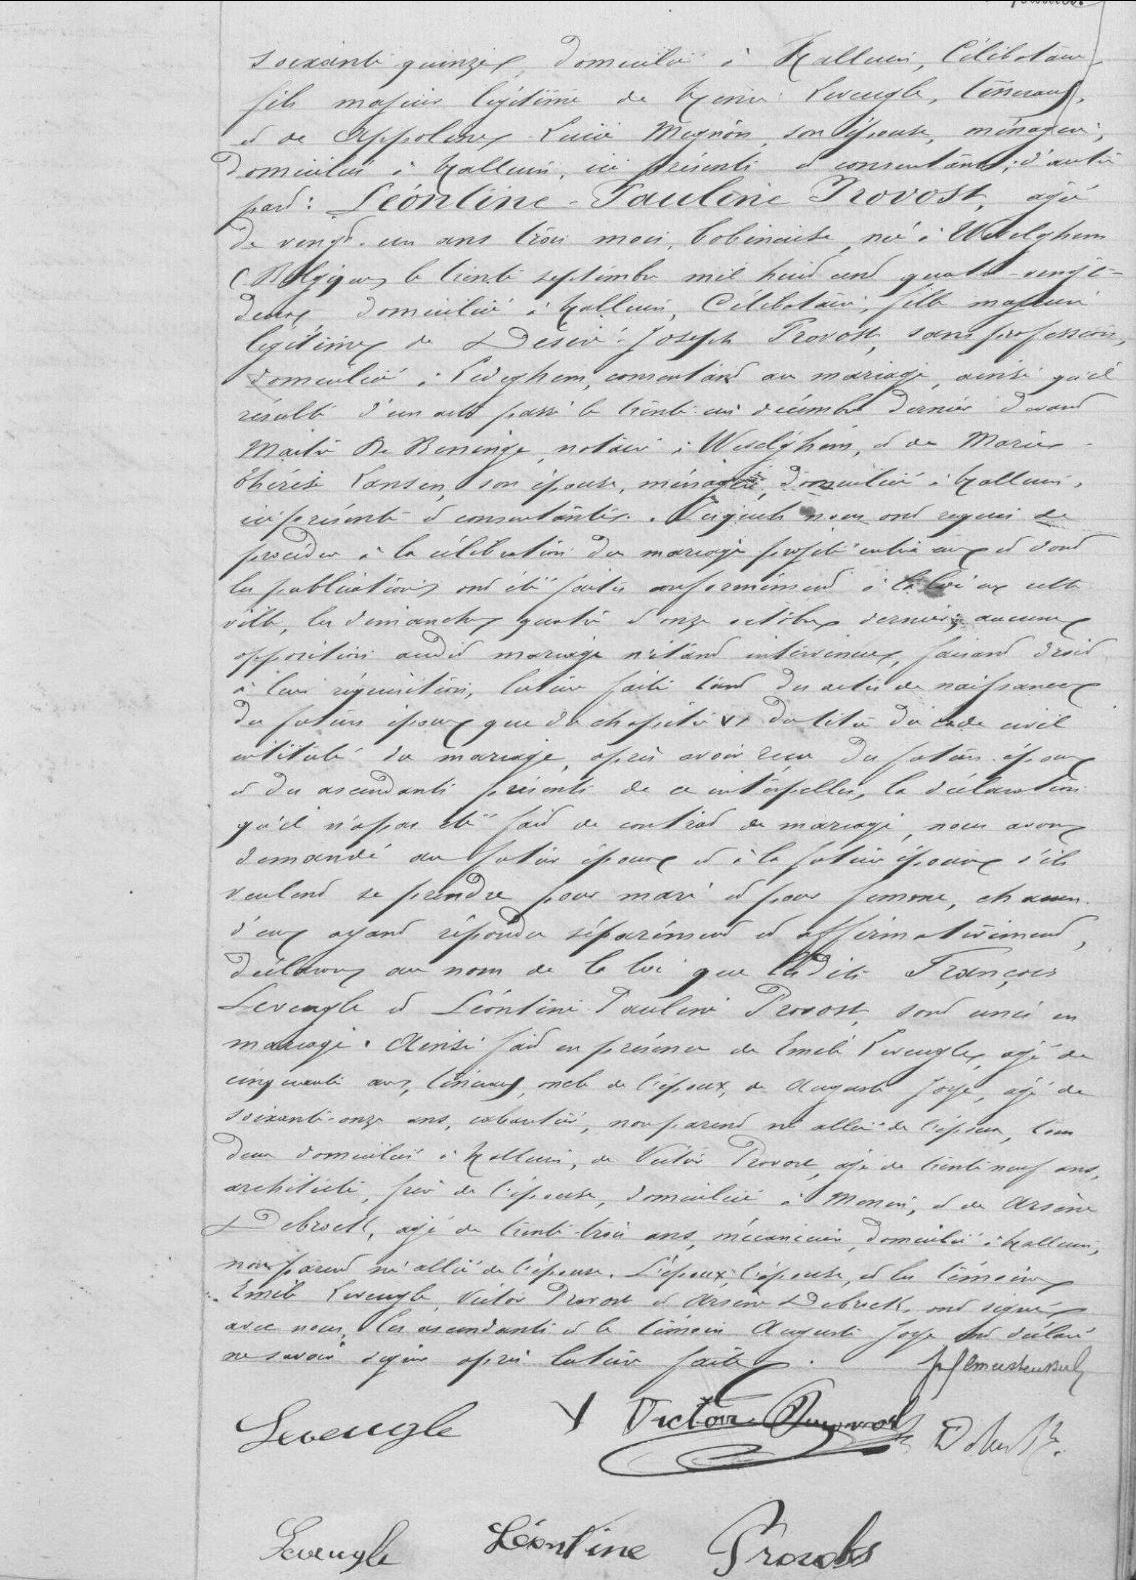 soixante quinze, domicilié à Halluin, Célibataire,
fils majeur légitime de Henri Leveugle, tisserand,
et de Appoline Lucie Mignon, son épouse, ménagère,
domiciliés à Halluin, ici présents et consentants; d'autre
part: Léontine-Pauline Provost, agée
de vingt-un ans trois mois, bobineuse, née à Wevelghem
(Belgique) le trente septembre mil huit cent quatre-vingt-
deux domiciliée à Halluin, Célibataire, fille majeure
légitime de Désiré-Joseph Provost, sans profession,
domicilié à Ledeghem, consentant au mariage, ainsi qu'il
résulte d'un acte passé le trente-un décembre dernier devant
Maître De Beninge, notaire à Wevelghem, et de Marie-
Thérèse Lansen, son épouse, ménagère, domiciliée à Halluin,
ici présente et consentante. Lesquels nous ont requis de
procéder à la célébration du mariage projeté entre eux et dont
les publications ont été faites conformément à la loi en cette
ville, les dimanches quatre et onze octobre dernier; aucune
opposition audit mariage n'étant intervenue, faisant droit
à leur réquisition, lecture faite tant des actes de naissance
des futurs époux que du chapitre VI du titre du code civil
intitulé du mariage, après avoir reçu des futurs époux
et des ascendants présents de ce interpellés, la déclaration
qu'il n'a pas été fait de contrat de mariage, nous avons
demandé au futur époux et à la future épouse s'ils
veulent se prendre pour mari et pour femme, chacun
d'eux ayant répondu séparément et affirmativement,
déclarons au nom de la loi que lesdits François
Leveugle et Léontine Pauline Provost, sont unis en
mariage. Ainsi fait en présence de Emile Leveugle, agé de
cinquante ans, tisserand, oncle de l'époux, de Auguste Joye, agé de
soixante-onze ans, cabaretier, non parent ni allié de l'époux, tous
deux domiciliés à Halluin, de Victor Provost, agé de trente neuf ans,
architecte, frère de l'épouse, domicilié à Menin, et de Arsène
Debrock, agé de trente-trois ans, mécanicien, domicilié à Halluin,
non parent ni allié de l'épouse. L'époux, l'épouse, et les témoins
Emile Leveugle, Victor Provost et Arsène Debrock, ont signé
avec nous, les ascendants et le témoin Auguste Joye ont déclaré
ne savoir signer après lecture faite.
Leveugle Victor Debrock
Leveugle Léontine Provost